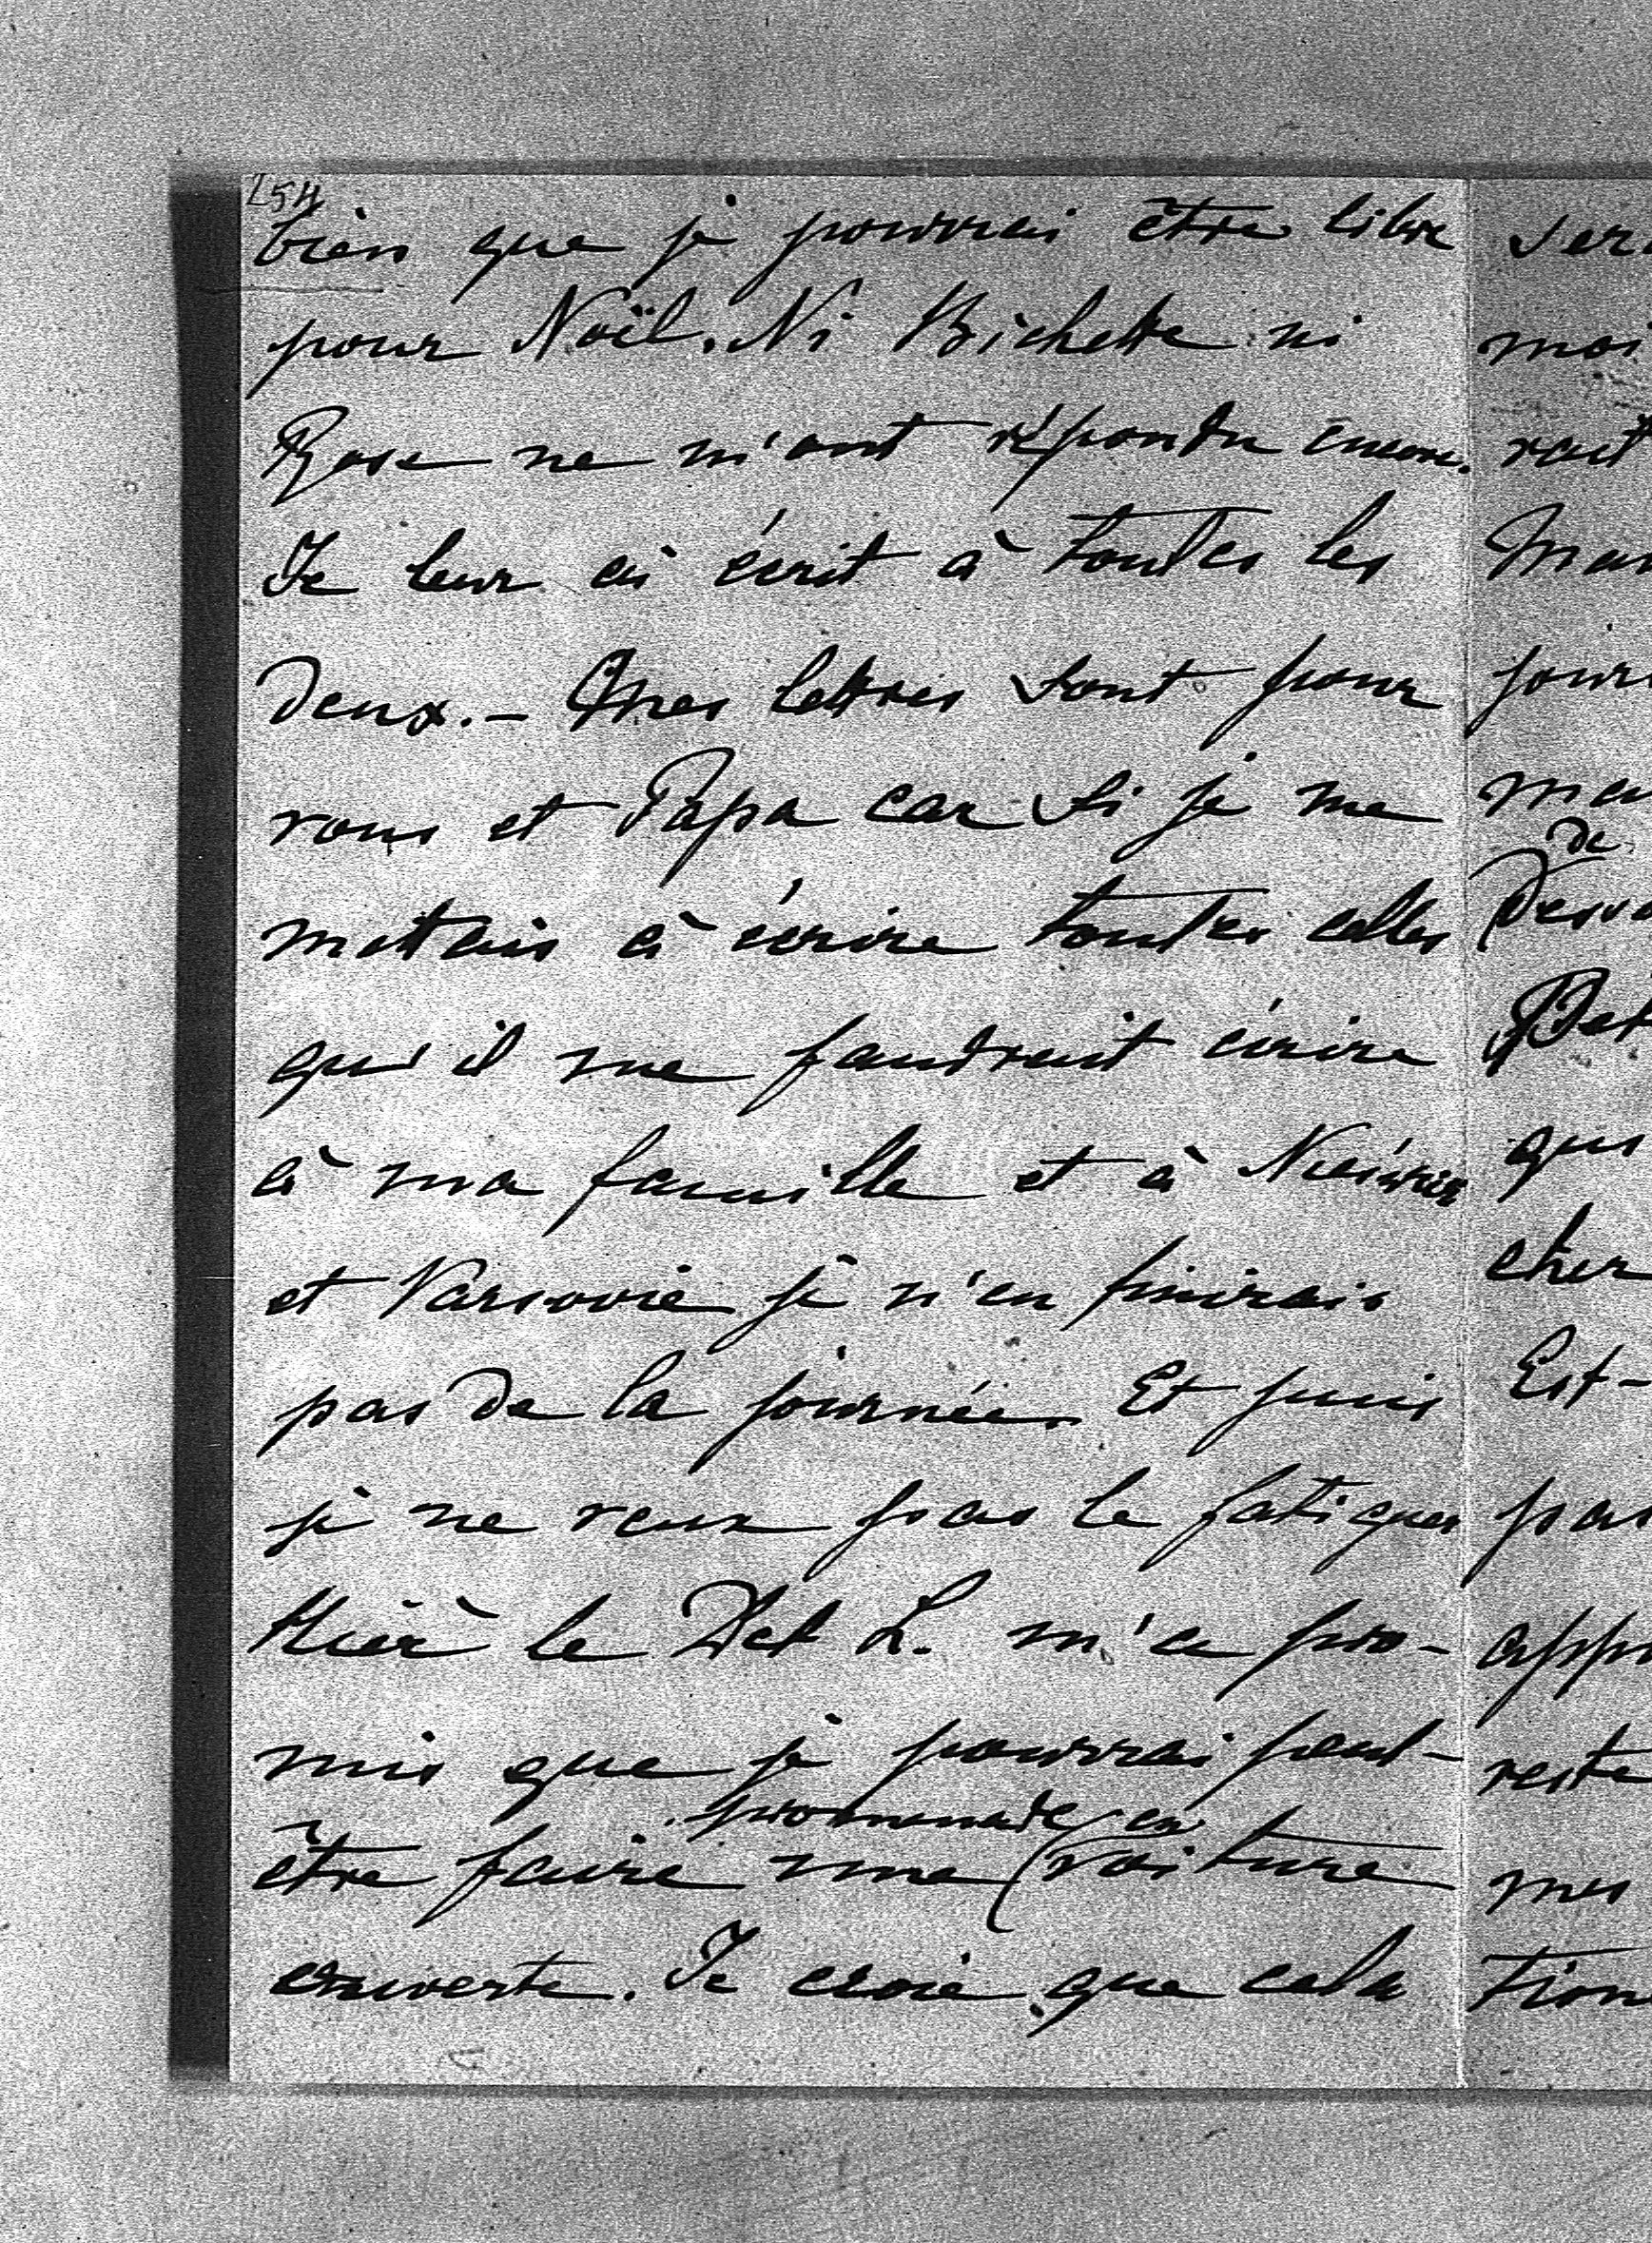 254
bien que je pourrai être libre
pour Noël. Ni Bichette ni
Rose ne m'ont répondu encore.
Je leur ai écrit à toutes les
deux. - Mes lettres sont pour
vous et Papa car si je me
mettais à écrire toutes celles
qu'il me faudrait écrire
à ma famille et à
et Varsovie je n'en finirais
pas de la journée. Et puis
je ne veux pas le fatiguer
Hier le L. m'a pro-
mis que je pourrai peut-
promenade en
être faire une (voiture
ouverte. Je crois que cela
ser
moi
rait
Mar
jour
de
qui
cher
Est-
pas
appr
reste
mes
tion